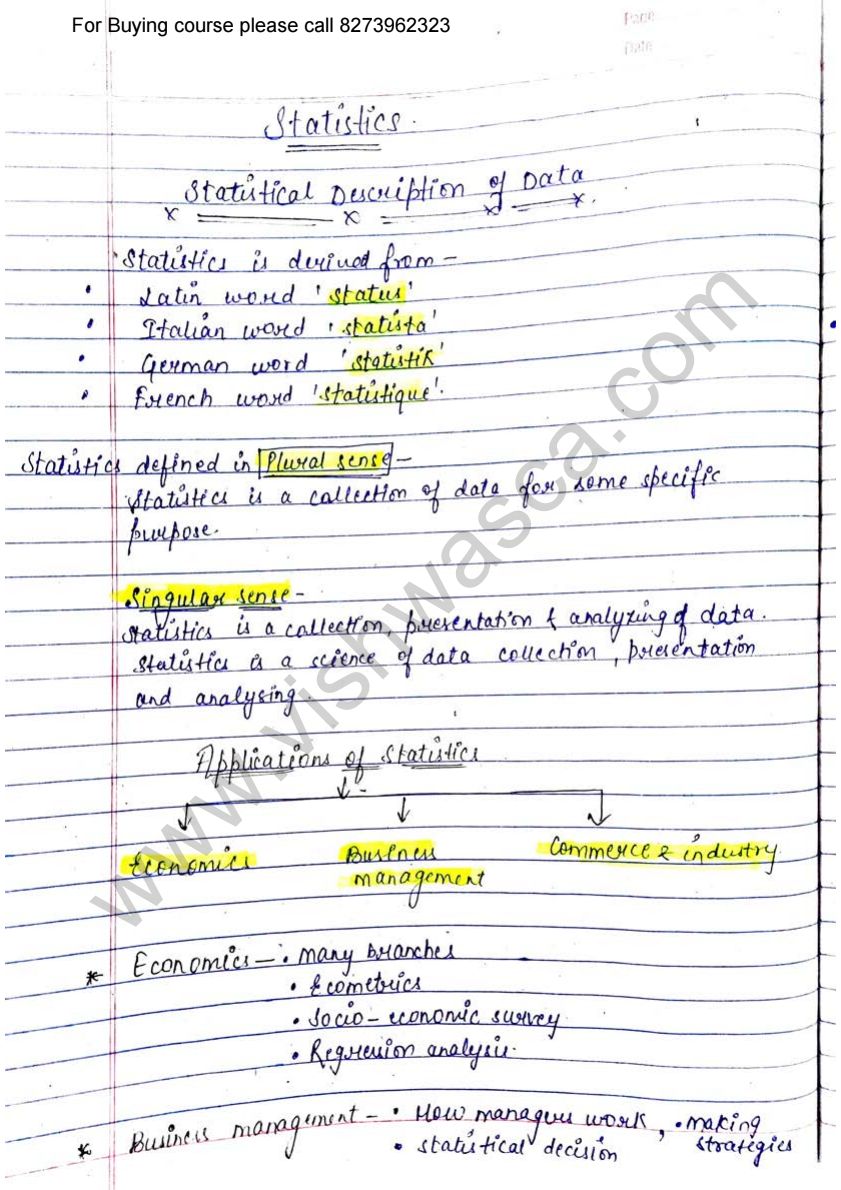 For Buying course please call 8273962323
Page
Date
Statistics.
Statistical Description of Data
Statistics is derived from -
• Latin word 'status'
• Italian word 'statista'
• German word 'statistik'
• French word 'statistique'.
Statistics defined in Plural sense -
Statistics is a collection of data for some specific
purpose.
Singular sense -
Statistics is a collection, presentation & analyzing of data.
Statistics is a science of data collection, presentation
and analysing.
Applications of Statistics
Economics
Business
management
Commerce & industry
* Economics - • many branches
• Ecometrics
• Socio-economic survey
• Regression analysis.
* Business management - • How managers work, • making
strategies
• statistical decision
www.vishwasca.com